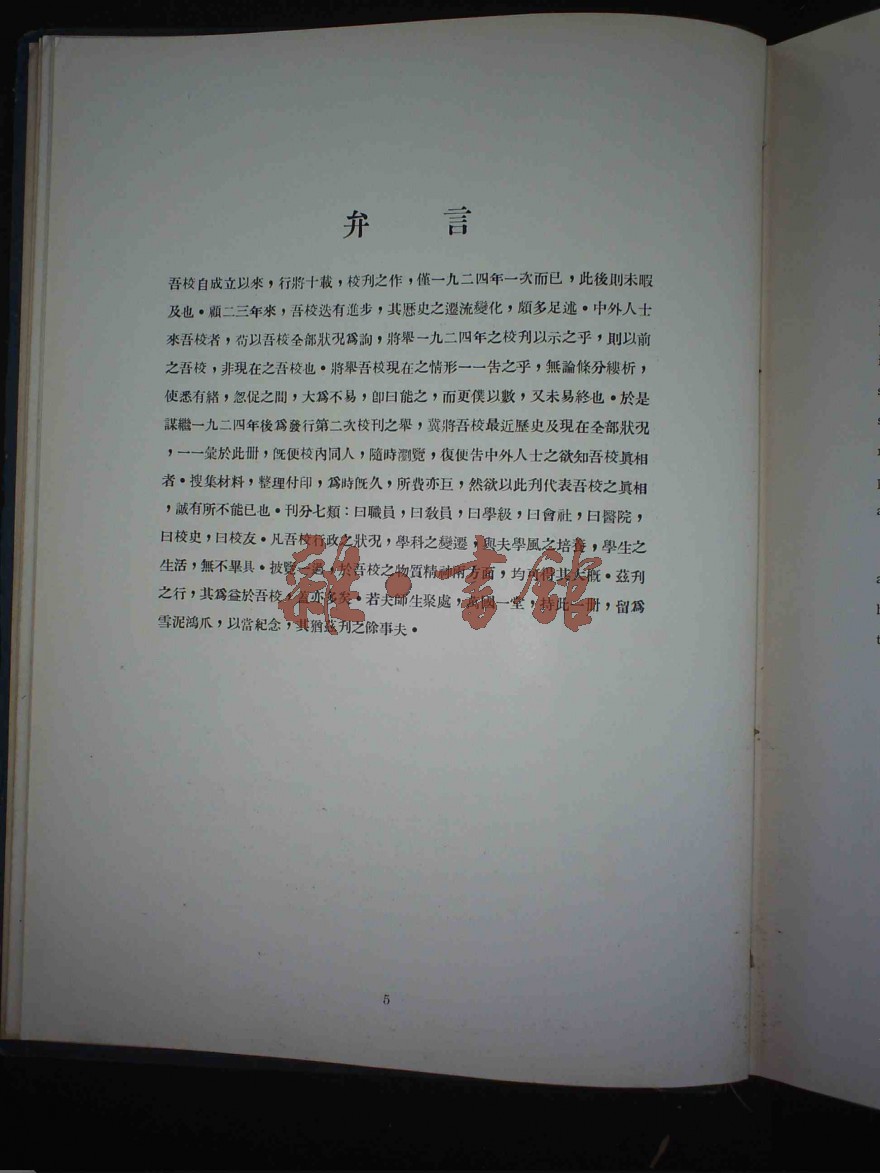 弁 言
吾校自成立以來，行將十載，校刊之作，僅一九二四年一次而已，此後則未暇
及也。顧二三年來，吾校迭有進步，其歷史之遷流變化，頗多足述。中外人士
來吾校者，苟以吾校全部狀况爲詢，將舉一九二四年之校刊以示之乎，則以前
之吾校，非現在之吾校也。將舉吾校現在之情形一一告之乎，無論條分縷析，
使悉有緒，忽促之間，大爲不易，卽曰能之，而更僕以數，又未易終也。於是
謀繼一九二四年後爲發行第二次校刊之舉，冀將吾校最近歷史及現在全部狀况
，一一彙於此册，旣便校內同人，隨時瀏覽，復便告中外人士之欲知吾校眞相
者。搜集材料，整理付印，爲時旣久，所費亦巨，然欲以此刊代表吾校之眞相
，誠有所不能已也。刊分七類：曰職員，曰敎員，曰學級，曰會社，曰醫院，
曰校史，曰校友。凡吾校行政之狀况，學科之變遷，與夫學風之培養，學生之
生活，無不畢具。披覽一過，於吾校之物質精神兩方面，均可得其大槪。茲刊
之行，其爲益於吾校，蓋亦多矣。若夫師生聚處，萬國一堂，持此一册，留爲
雪泥鴻爪，以當紀念，其猶茲刊之餘事夫。
雜·書館
5